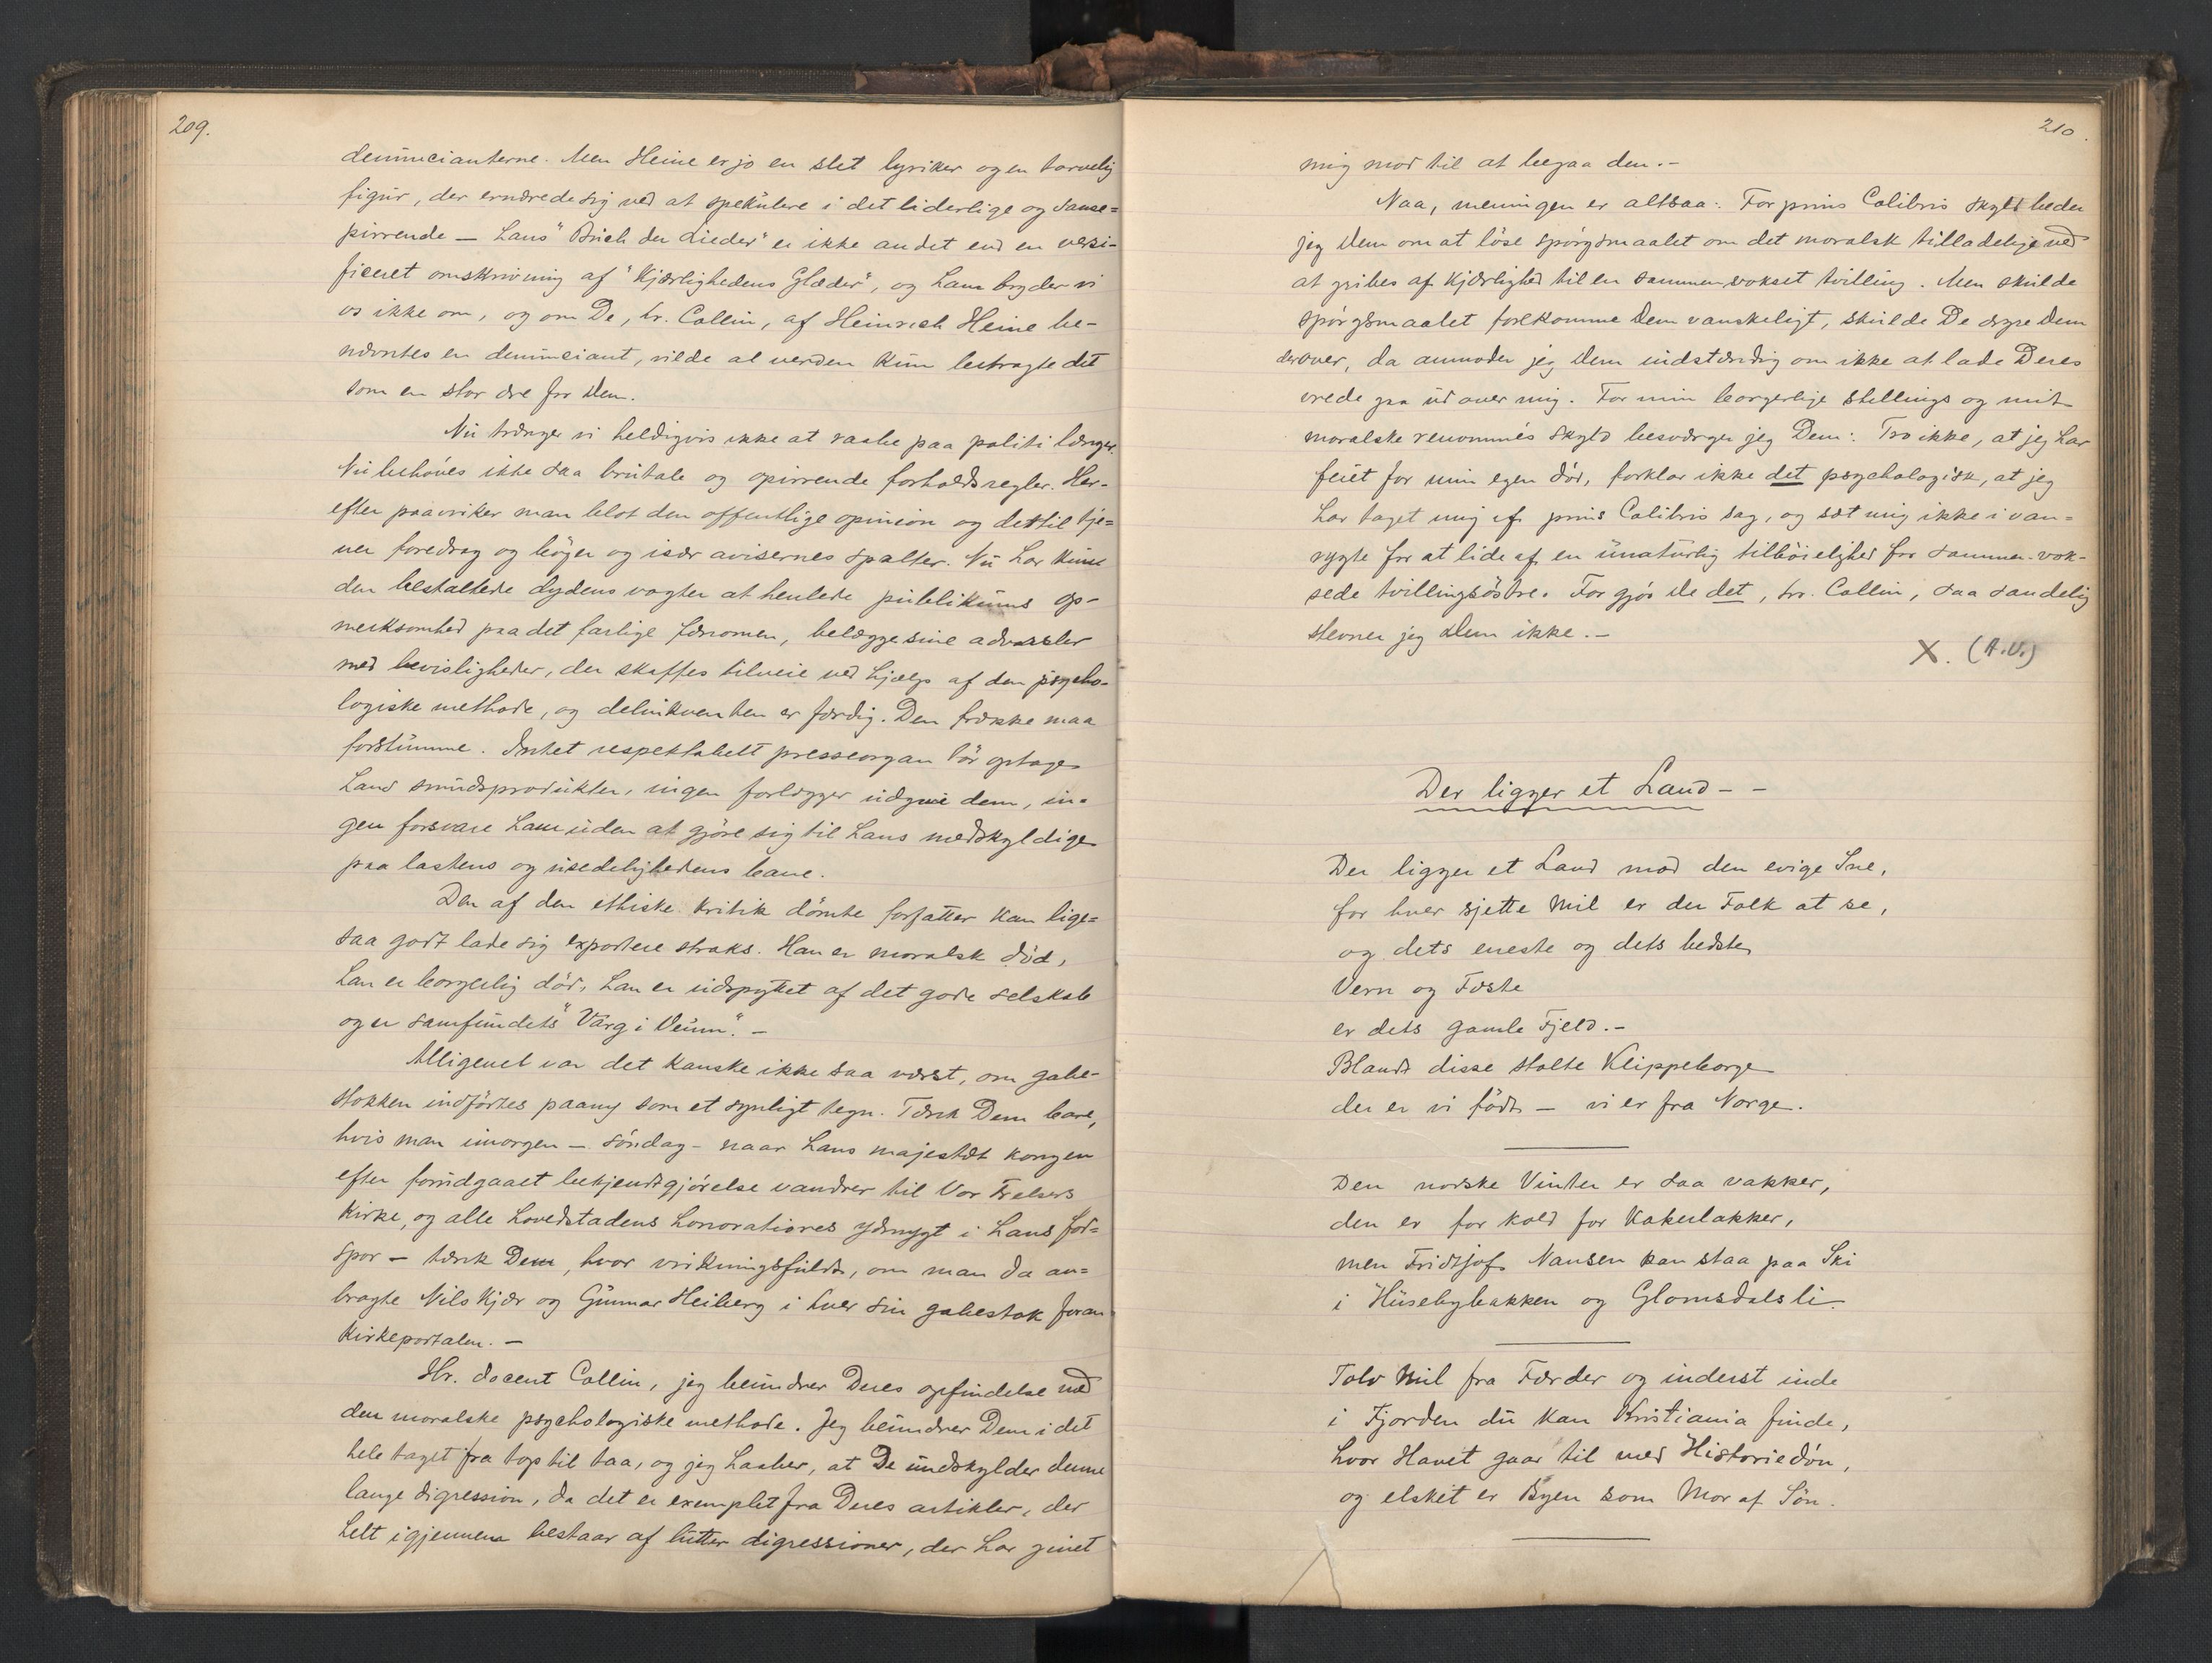 209.
denunncianterne. Men Heine er jo en slet lyriker og en tarvelig
figur, der ernærede sig ved at spekulere i det liderlige og sanse=
pirrende — hans "Buch der Lieder" er ikke andet end en versi-
ficeret omskrivning af "Kjærlighedens Glæder", og ham bryder vi
os ikke om, og om De, hr. Collin, af Heinrich Heine be-
nævntes en denunciant, vilde al verden kun betragte det
som en stor ære for Dem.
Nu trænger vi heldigvis ikke at raabe paa politi længer.
Nu behöves ikke saa brutale og opirrende forholdsregler. Her-
efter paavirker man blot den offentlige opinion og dertil tje=
ner foredrag og böger og især avisernes spalter. Nu har kun
den bestaltede dydens vogter at henlede publikums op-
merksomhed paa det farlige fænomen, belægge sine advarsler
med bevisligheder, der skaffes tilveie ved hjælp af den psycho-
logiske methode, og delinkventen er færdig. Den frække maa
forstumme. Intet respektabelt presseorgan tör optage
hans smudsprodukter, ingen forlægger udgive dem, in=
gen forsvare ham uden at gjöre sig til hans medskyldige
paa lastens og usedelighedens bane.
Den af den ethiske kritik dömte forfatter kan lige=
saa godt lade sig exportere straks. Han er moralsk död,
han er borgerlig död, han er udspyttet af det gode selskab
og er samfundets "Varg i Veum". —
Alligevel var det kanske ikke saa værst, om gabe-
stokken indförtes paany som et synligt tegn. Tænk Dem bare,
hvis man imorgen — söndag - naar hans majestæt kongen
efter forudgaaet bekjendtgjörelse vandrer til Vor Frelsers
Kirke, og alle hovedstadens honoratiores ydmygt i hans fod=
spor — tænk Dem, hvor virkningsfuldt, om man da an=
bragte Nils Kjær og Gunnar Heiberg i hver sin gabestok foran
kirkeportalen. —
Hr. docent Collin, jeg beundrer Deres opfindelse med
den moralske psychologiske methode. Jeg beundrer Dem i det
hele taget fra top til taa, og jeg haaber, at De undskylder denne
lange digression, da det er exemplet fra Deres artikler, der
helt igjennem bestaar af lutter digressioner, der har givet
210.
mig mod til at begaa den. -
Naa, meningen er altsaa: For prins Colibris skyld beder
jeg Dem om at löse spörgsmaalet om det moralsk tilladelige ved
at gribes af kjærlighed til en sammenvokset tvilling. Men skulde
spörgsmaalet forekomme Dem vanskeligt, skulde De ærgre Dem
derover, da anmoder jeg Dem indstændig om ikke at lade Deres
vrede gaa ud over mig. For min borgerlige stillings og mit
moralske renommés skyld besværger jeg Dem: Tro ikke, at jeg har
feiet for min egen dör, forklar ikke det psychologisk, at jeg
har taget mig af prins Colibris sag, og sæt mig ikke i van=
rygte for at lide af en unaturlig tilböielighed for sammen-vok-
sede tvillingsöstre. For gjör De det, hr. Collin, saa sandelig
stevner jeg Dem ikke. —
X. (A.V.)
Der ligger et Land - -
Der ligger et Land mod den evige Sne,
for hver sjette Mil er der Folk at se,
og dets eneste og dets bedste
Vern og Fæste
er dets gamle Fjeld. -
Blandt disse stolte Klippeborge
der er vi födt — vi er fra Norge.
Den norske Vinter er saa vakker,
den er for kold for Kakerlakker,
men Fridtjof Nansen kan staa paa Ski
i Husebybakken og Glomsdalsli.
Tolv Mil fra Færder og inderst inde
i Fjorden du kan Kristiania finde,
hvor Havet gaar til med Historiedön,
og elsket er Byen som Mor af Sön.